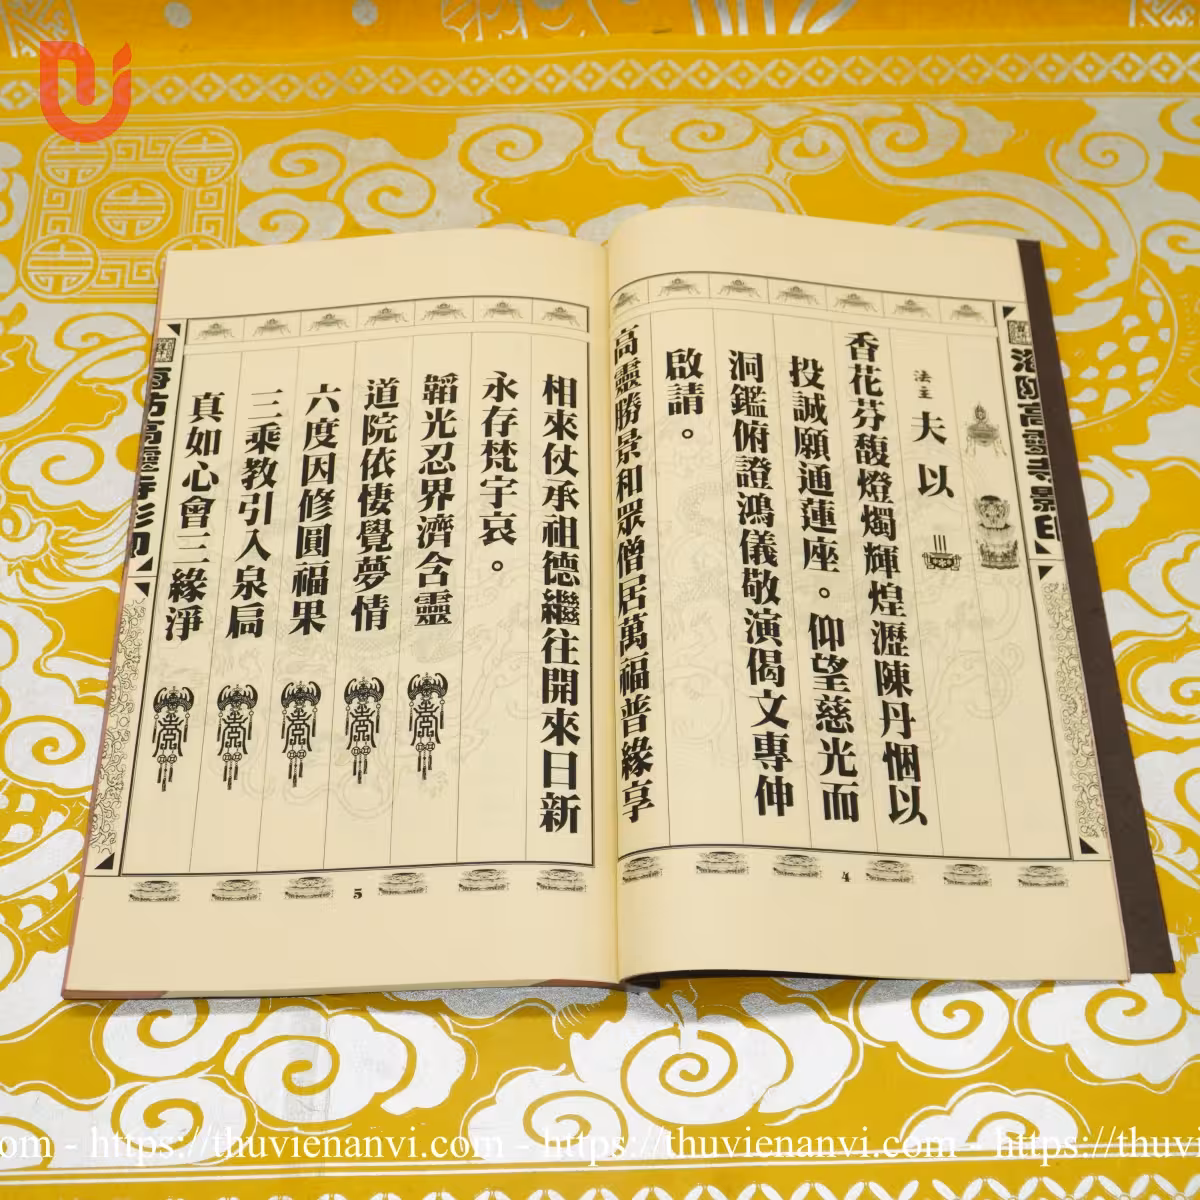 海防高靈寺影印
法主
夫以
香花芬馥燈燭輝煌瀝陳丹悃以
投誠願通蓮座。仰望慈光而
洞鑑俯證鴻儀敬演偈文專伸
啟請。
高靈勝景和眾僧居萬福普緣享
4
相來仗承祖德繼往開來日新
永存梵宇哀。
韜光忍界濟含靈
道院依棲覺夢情
六度因修圓福果
三乘教引入泉扃
真如心會三緣淨
海防高靈寺影印
5
.com - https://thuvienanvi.com - https://thuvi